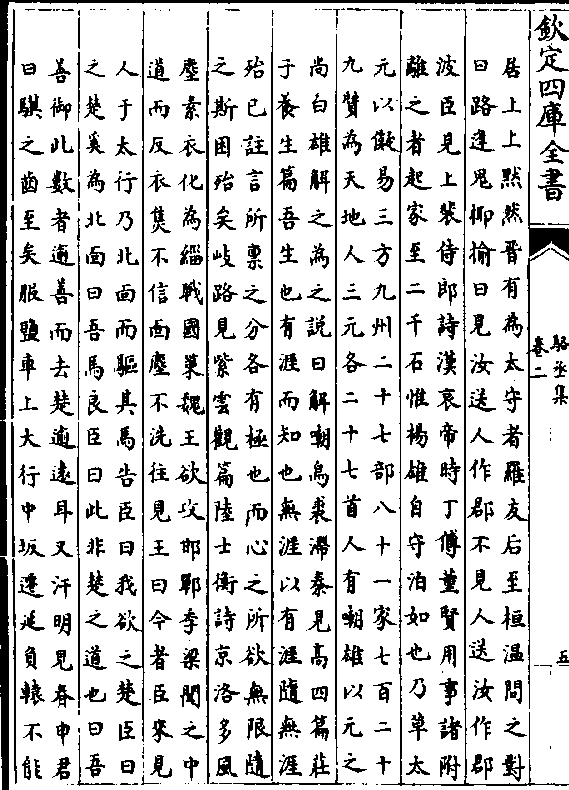 欽定四庫全書
駱丞集
卷二
五
居上上黙然晉有為太守者羅友后至桓温問之對
曰路逢鬼揶揄曰見汝送人作郡不見人送汝作郡
波臣見上裴侍郎詩漢哀帝時丁傅董賢用事諸附
離之者起家至二千石惟楊雄自守泊如也乃草太
元以儗易三方九州二十七部八十一家七百二十
九贊為天地人三元各二十七首人有嘲雄以元之
尚白雄解之為之説曰解嘲烏裘滯秦見髙四篇莊
于養生篇吾生也有涯而知也無涯以有涯隨無涯
殆已註言所禀之分各有極也而心之所欲無限隨
之斯困殆矣岐路見紫雲觀篇陸士衡詩京洛多風
塵素衣化為緇戰國䇿魏王欲攻邯鄲季梁聞之中
道而反衣焦不信面塵不洗往見王曰今者臣來見
人于太行乃北面而驅其馬告臣曰我欲之楚臣曰
之楚奚為北面曰吾馬良臣曰此非楚之道也曰吾
善御此數者逾善而去楚逾逺耳又汗明見春申君
曰騏之齒至矣服鹽車上大行中坂遷延負轅不能